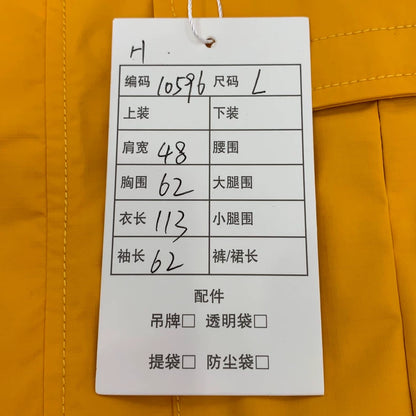 H
编码 10596 尺码 L
上装 下装
肩宽 48 腰围
胸围 62 大腿围
衣长 113 小腿围
袖长 62 裤/裙长
配件
吊牌□ 透明袋□
提袋□ 防尘袋□